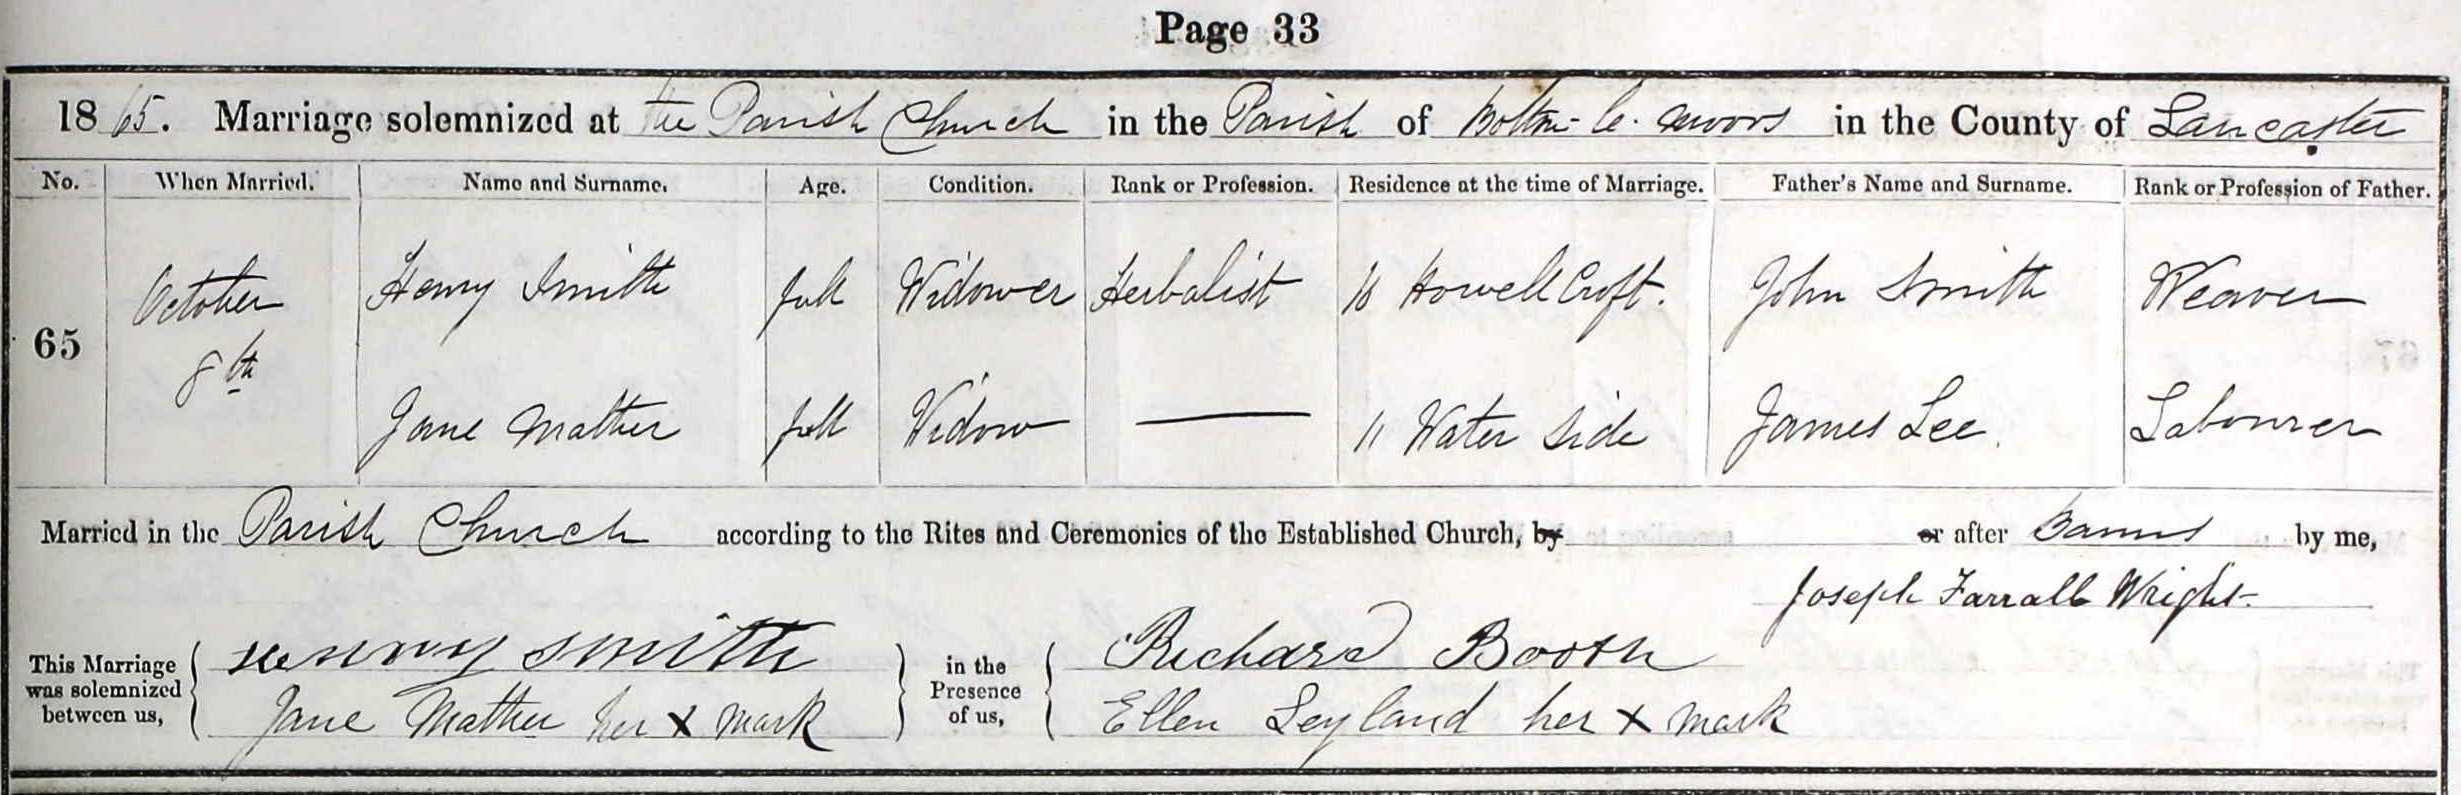 Page 33
1865. Marriage solemnized at the Parish Church in the Parish of Bolton-le-moors in the County of Lancaster
No. When Married. Name and Surname. Age. Condition. Rank or Profession. Residence at the time of Marriage. Father's Name and Surname. Rank or Profession of Father.
65 October 8th Henry Smith full Widower Herbalist Howell Croft. John Smith Weaver
Jane Mather full Widow 11 Water Side James Lee. Labourer
Married in the Parish Church according to the Rites and Ceremonies of the Established Church, by or after Banns by me,
Joseph Farrall Wright.
This Marriage was solemnized between us, Henry Smith in the Presence of us, Richard Booth
Jane Mather her X mark Ellen Leyland her X mark